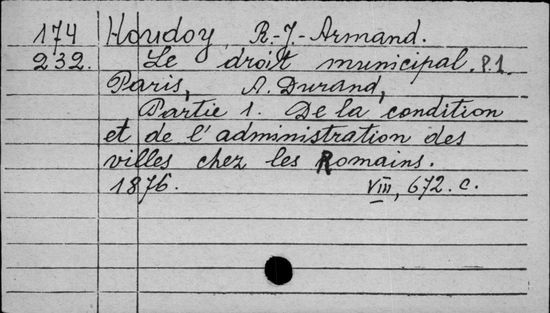 174 Houdoy, R.-J.-Armand.
232. Le droit municipal. P.1.
Paris, A. Durand,
Partie 1. De la condition
et de l'administration des
villes chez les Romains.
1876. VIII, 672. c.